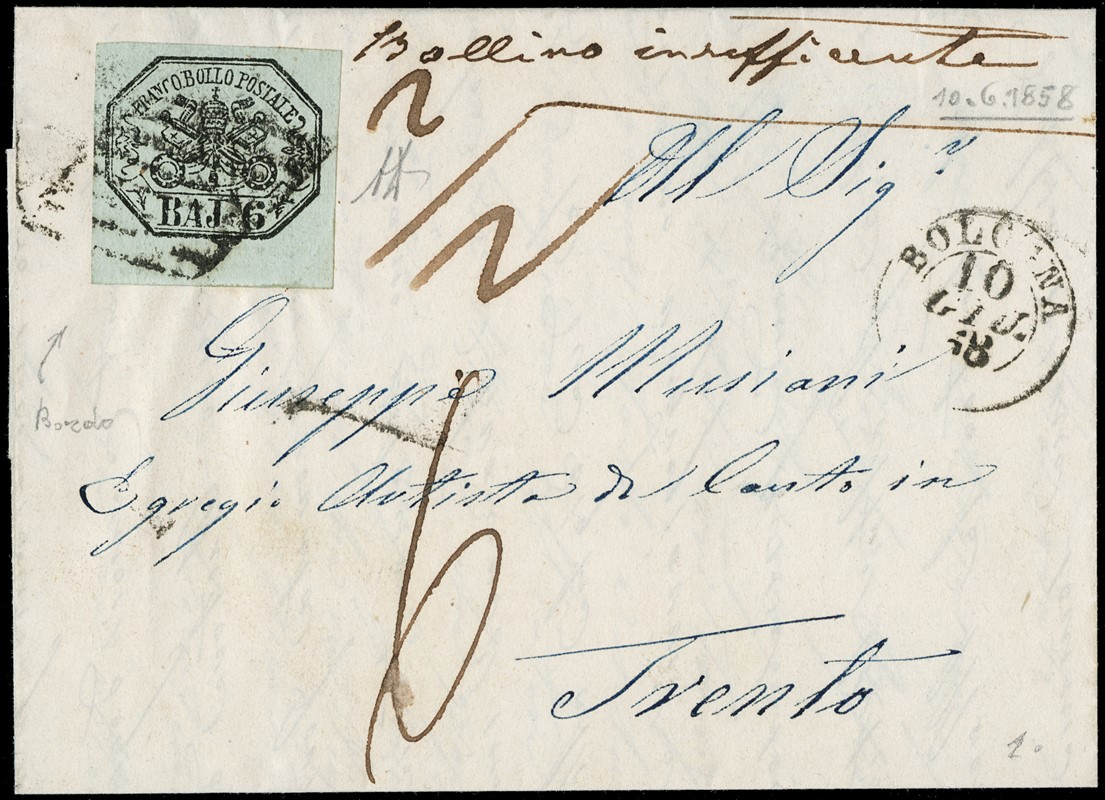 Bollino insufficente
10.6.1858
FRANCO BOLLO POSTALE
BAJ. 6
2
2
Al Sigr
BOLOGNA
10
GIU.
58
Giuseppe Musiani
Bordo
Egregio Artista di Canto in
6
Trento
1.